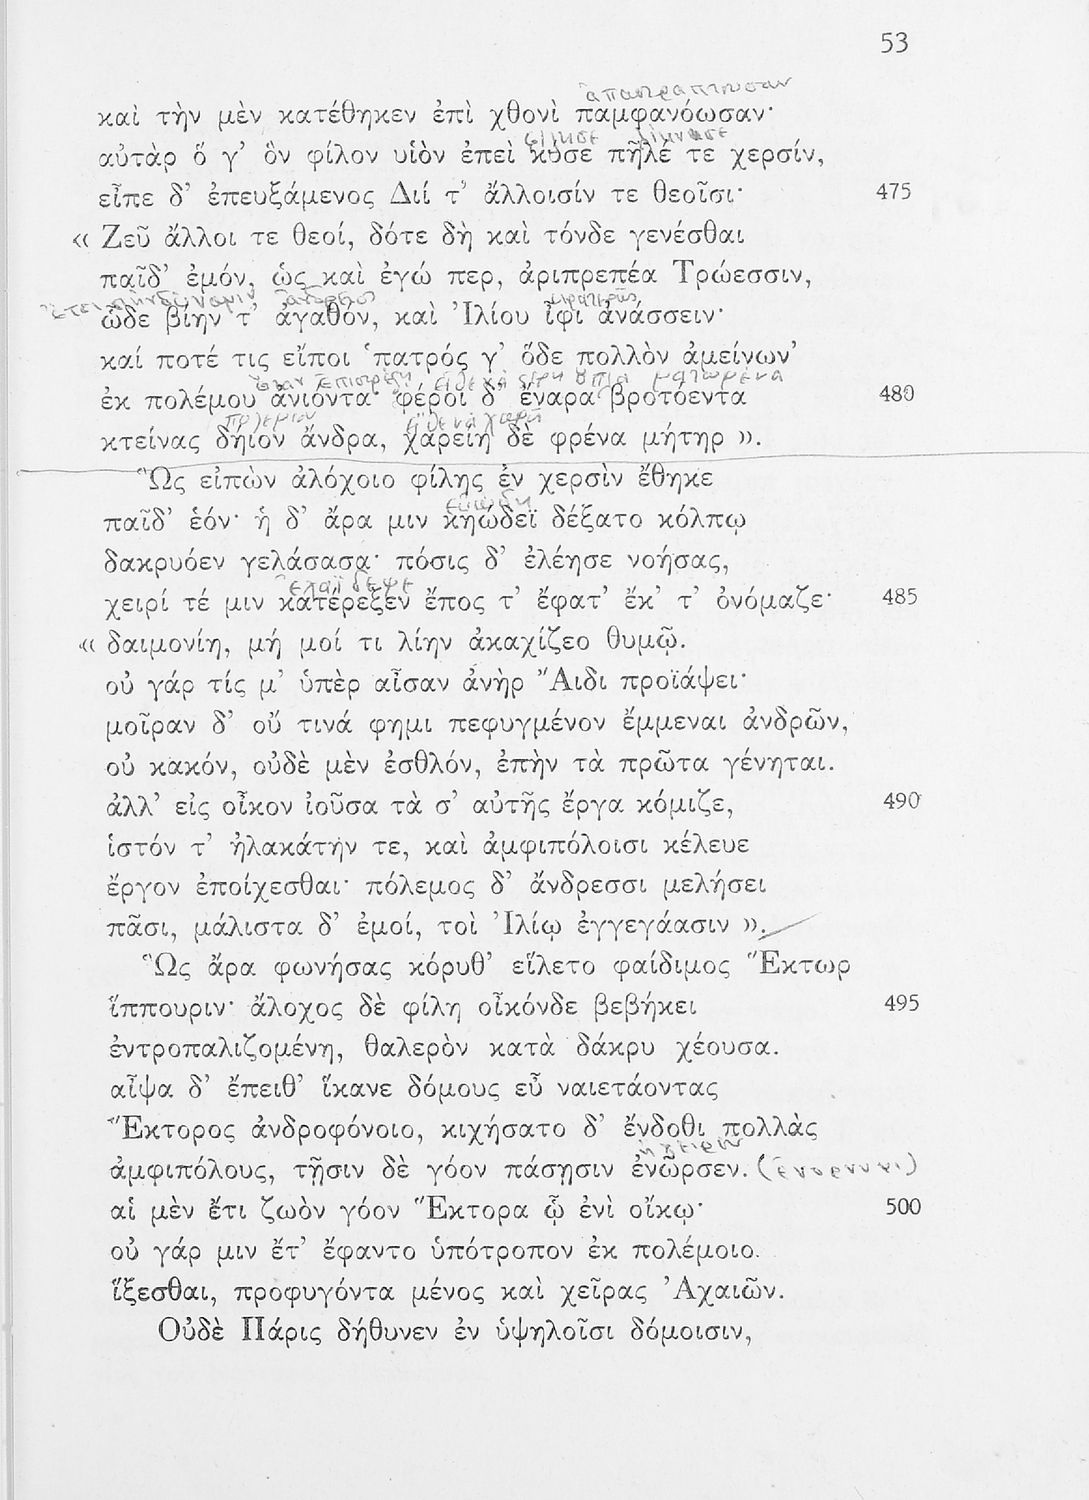 53
καὶ τὴν μὲν κατέθηκεν ἐπὶ χθονὶ παμφανόωσαν·
αὐτὰρ ὅ γ’ ὃν φίλον υἱὸν ἐπεὶ κύσε πῆλέ τε χερσίν,
εἶπε δ’ ἐπευξάμενος Διί τ’ ἄλλοισίν τε θεοῖσι· 475
« Ζεῦ ἄλλοι τε θεοί, δότε δὴ καὶ τόνδε γενέσθαι
παῖδ’ ἐμόν, ὡς καὶ ἐγώ περ, ἀριπρεπέα Τρώεσσιν,
ὧδε βίην τ’ ἀγαθόν, καὶ Ἰλίου ἶφι ἀνάσσειν·
καί ποτέ τις εἴποι ‘πατρός γ’ ὅδε πολλὸν ἀμείνων’
ἐκ πολέμου ἀνιόντα· φέροι δ’ ἔναρα βροτόεντα 480
κτείνας δήϊον ἄνδρα, χαρείη δὲ φρένα μήτηρ ».
Ὣς εἰπὼν ἀλόχοιο φίλης ἐν χερσὶν ἔθηκε
παῖδ’ ἑόν· ἡ δ’ ἄρα μιν κηώδεϊ δέξατο κόλπῳ
δακρυόεν γελάσασα· πόσις δ’ ἐλέησε νοήσας,
χειρί τέ μιν κατέρεξεν ἔπος τ’ ἔφατ’ ἔκ’ τ’ ὀνόμαζε· 485
« δαιμονίη, μή μοί τι λίην ἀκαχίζεο θυμῷ.
οὐ γάρ τίς μ’ ὑπὲρ αἶσαν ἀνὴρ Ἄϊδι προϊάψει·
μοῖραν δ’ οὔ τινά φημι πεφυγμένον ἔμμεναι ἀνδρῶν,
οὐ κακόν, οὐδὲ μὲν ἐσθλόν, ἐπὴν τὰ πρῶτα γένηται.
ἀλλ’ εἰς οἶκον ἰοῦσα τὰ σ’ αὐτῆς ἔργα κόμιζε, 490
ἱστόν τ’ ἠλακάτην τε, καὶ ἀμφιπόλοισι κέλευε
ἔργον ἐποίχεσθαι· πόλεμος δ’ ἄνδρεσσι μελήσει
πᾶσι, μάλιστα δ’ ἐμοί, τοὶ Ἰλίῳ ἐγγεγάασιν ».
Ὣς ἄρα φωνήσας κόρυθ’ εἵλετο φαίδιμος Ἕκτωρ
ἵππουριν· ἄλοχος δὲ φίλη οἶκόνδε βεβήκει 495
ἐντροπαλιζομένη, θαλερὸν κατὰ δάκρυ χέουσα.
αἶψα δ’ ἔπειθ’ ἵκανε δόμους εὖ ναιετάοντας
Ἕκτορος ἀνδροφόνοιο, κιχήσατο δ’ ἔνδοθι πολλὰς
ἀμφιπόλους, τῇσιν δὲ γόον πάσῃσιν ἐνῶρσεν.
αἱ μὲν ἔτι ζωὸν γόον Ἕκτορα ᾧ ἐνὶ οἴκῳ· 500
οὐ γάρ μιν ἔτ’ ἔφαντο ὑπότροπον ἐκ πολέμοιο
ἵξεσθαι, προφυγόντα μένος καὶ χεῖρας Ἀχαιῶν.
Οὐδὲ Πάρις δήθυνεν ἐν ὑψηλοῖσι δόμοισιν,